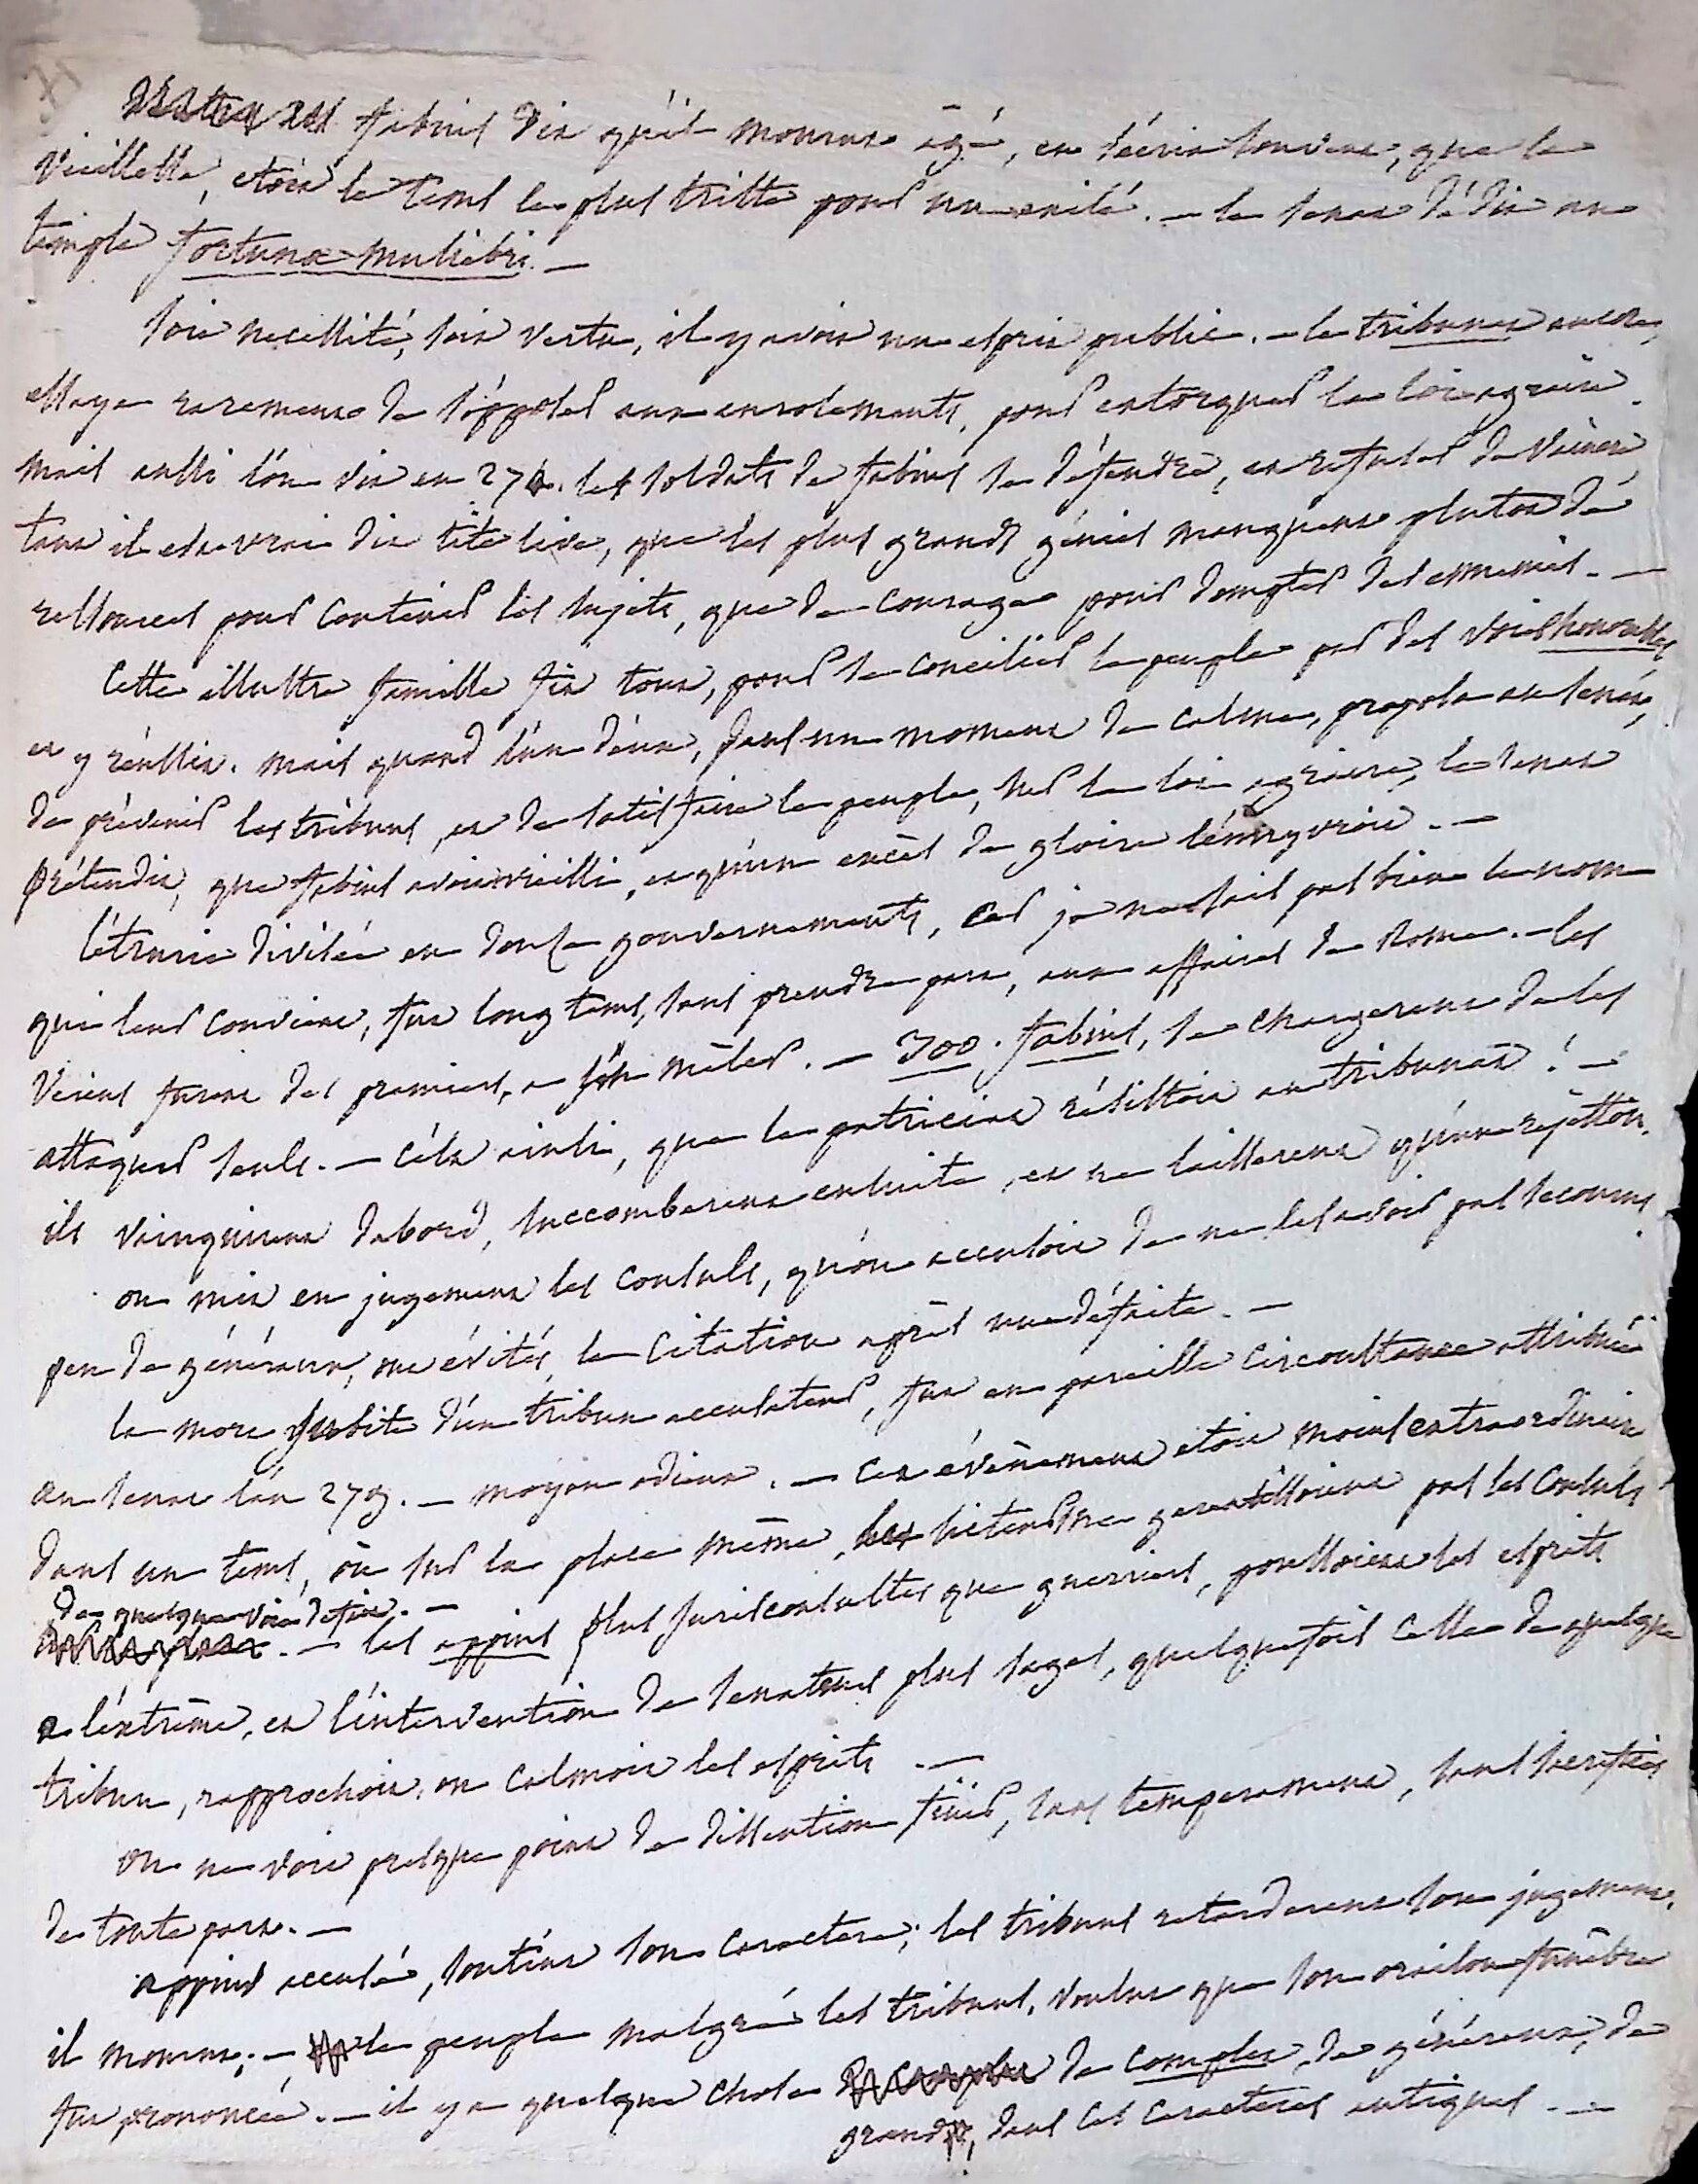 fabius dit qu'il mourut agé, et décria souvent, que la
vieillesse, etoit le tems le plus triste pour un exilé. — le senat dédia un
temple fortunæ muliebri. —
soit necessité, soit vertu, il y avoit un esprit public. — le tribunat encore,
essaya rarement de s'opposer aux enrolements, pour extorquer la loi agraire.
mais aussi l'on vit en 27 les soldats de fabius se défendre, et refuser de vaincre
tant il est vrai dit tite live, que les plus grands génies manquent plutot de
ressources pour contenir les sujets, que de courage pour dompter des ennemis. —
Cette illustre famille fit tout, pour se concilier le peuple par des voies honorables
et y réussit. mais quand l'un d'eux, dans un moment de calme, proposa au senat,
de prévenir les tribuns, et de satisfaire le peuple, sur la loi agraire, le senat
prétendit, que fabius avoit vieilli, et qu'un excès de gloire l'énivroit. —
l'étrurie divisée en douze gouvernements, car je ne sais pas bien le nom
qui leur convient, fut long tems, sans prendre part, aux affaires de Rome. — les
Veiens furent des premiers, a s'en mêler. — 300. fabius, se chargerent de les
attaquer seuls. — c'est ainsi, que le patriciat résistoit au tribunat ! —
ils vainquirent dabord, succomberent ensuite, et ne laisserent qu'un rejetton.
on mit en jugement les consuls, qu'on accusoit de ne les avoir pas secourus.
peu de généraux, ont évités, la citation après une défaite. —
la mort subite d'un tribun accusateur, fut en pareille circonstance attribuée
au senat l'an 279. — moyen odieux. — cet évènement etoit moins extraordinaire
dans un tems, où sur la place même, les licteurs ne garantissoient pas les Consuls
de quelque voie de fait. —
— les appius plus jurisconsultes que guerriers, poussoient les esprits
a l'extrême, et l'intervention de senateurs plus sages, quelquefois celle de quelque
tribun, rapprochoit, ou calmoit les esprits. —
on ne voit presque point de dissention finir, sans temperament, sans sacrifices
de toute part. —
appius accusé, soutint son caractere; les tribuns retarderent son jugement.
il mourut; — le peuple malgré les tribuns, voulut que son oraison funèbre
fut prononcée. — il y a quelque chose de complet, de généreux, de
grand, dans ces caracteres antiques. —